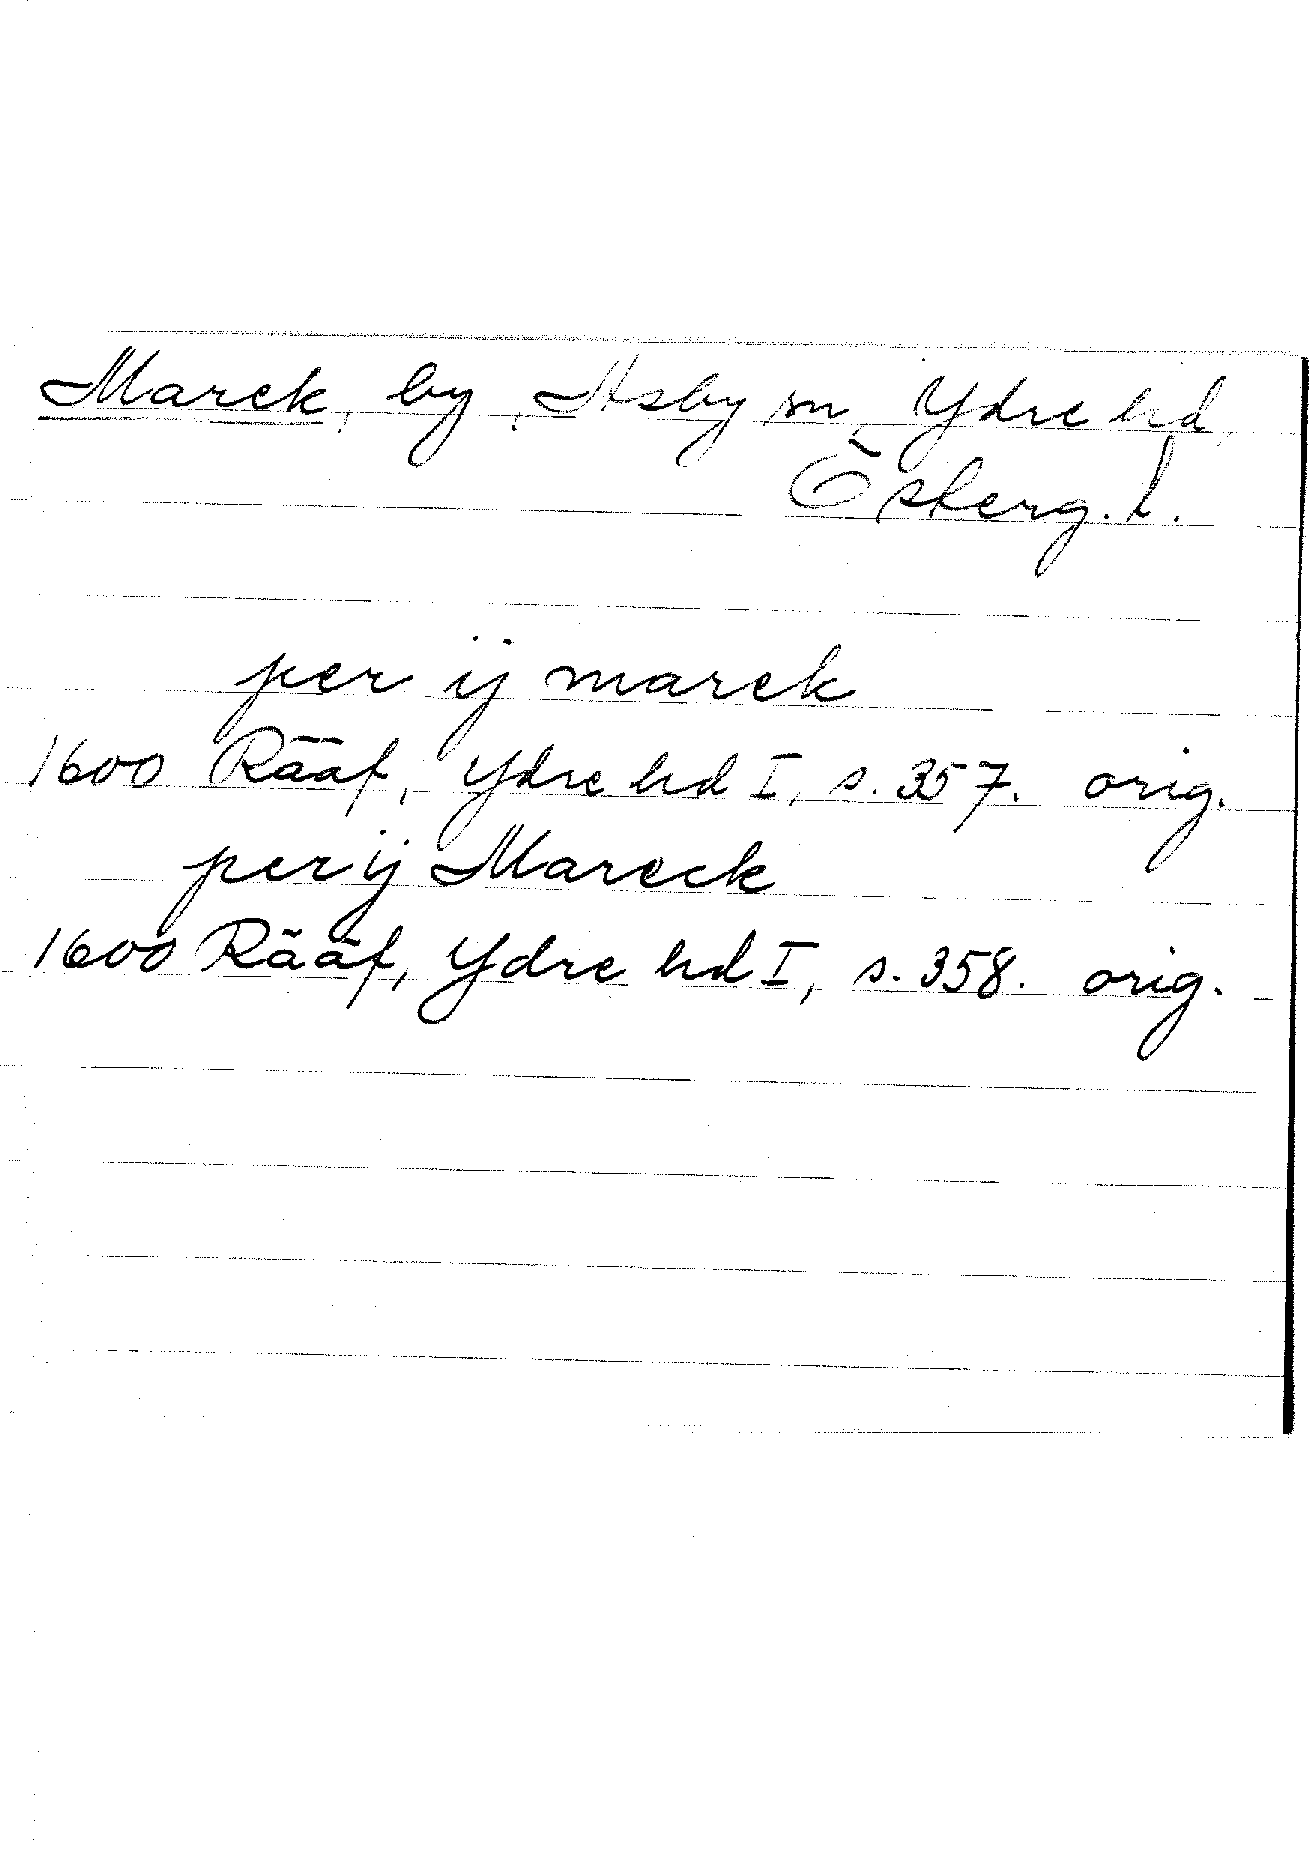 Marek, by, Asby sn, Ydre hd,
Österg. l.
per ij marek
1600 Rääf, Ydre hd I, s. 357. orig.
per ij Mareck
1600 Rääf, Ydre hd I, s. 358. orig.